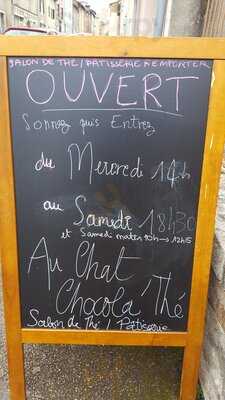 SALON DE THÉ / PATISSERIE A EMPORTER
OUVERT
Sonnez puis Entrez
du Mercredi 14h
au Samedi 18h30
et Samedi matin 10h → 12h15
Au Chat
Chocola'Thé
Salon de Thé / Patisserie